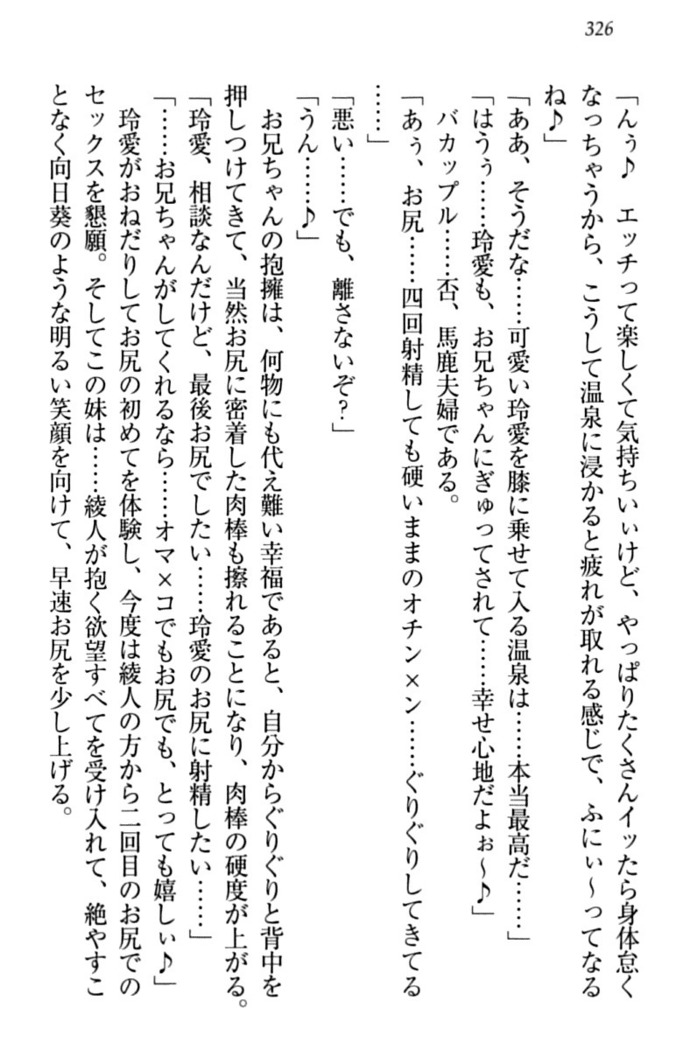 326
「んぅ♪　エッチって楽しくて気持ちいぃけど、やっぱりたくさんイッたら身体怠く
なっちゃうから、こうして温泉に浸かると疲れが取れる感じで、ふにぃ～ってなる
ね♪」
「ああ、そうだな……可愛い玲愛を膝に乗せて入る温泉は……本当最高だ……」
「はうぅ……玲愛も、お兄ちゃんにぎゅってされて……幸せ心地だよぉ～♪」
バカップル……否、馬鹿夫婦である。
「あぅ、お尻……四回射精しても硬いままのオチン×ン……ぐりぐりしてきてる
……」
「悪い……でも、離さないぞ？」
「うん……♪」
お兄ちゃんの抱擁は、何物にも代え難い幸福であると、自分からぐりぐりと背中を
押しつけてきて、当然お尻に密着した肉棒も擦れることになり、肉棒の硬度が上がる。
「玲愛、相談なんだけど、最後お尻でしたい……玲愛のお尻に射精したい……」
「……お兄ちゃんがしてくれるなら……オマ×コでもお尻でも、とっても嬉しぃ♪」
玲愛がおねだりしてお尻の初めてを体験し、今度は綾人の方から二回目のお尻での
セックスを懇願。そしてこの妹は……綾人が抱く欲望すべてを受け入れて、絶やすこ
となく向日葵のような明るい笑顔を向けて、早速お尻を少し上げる。